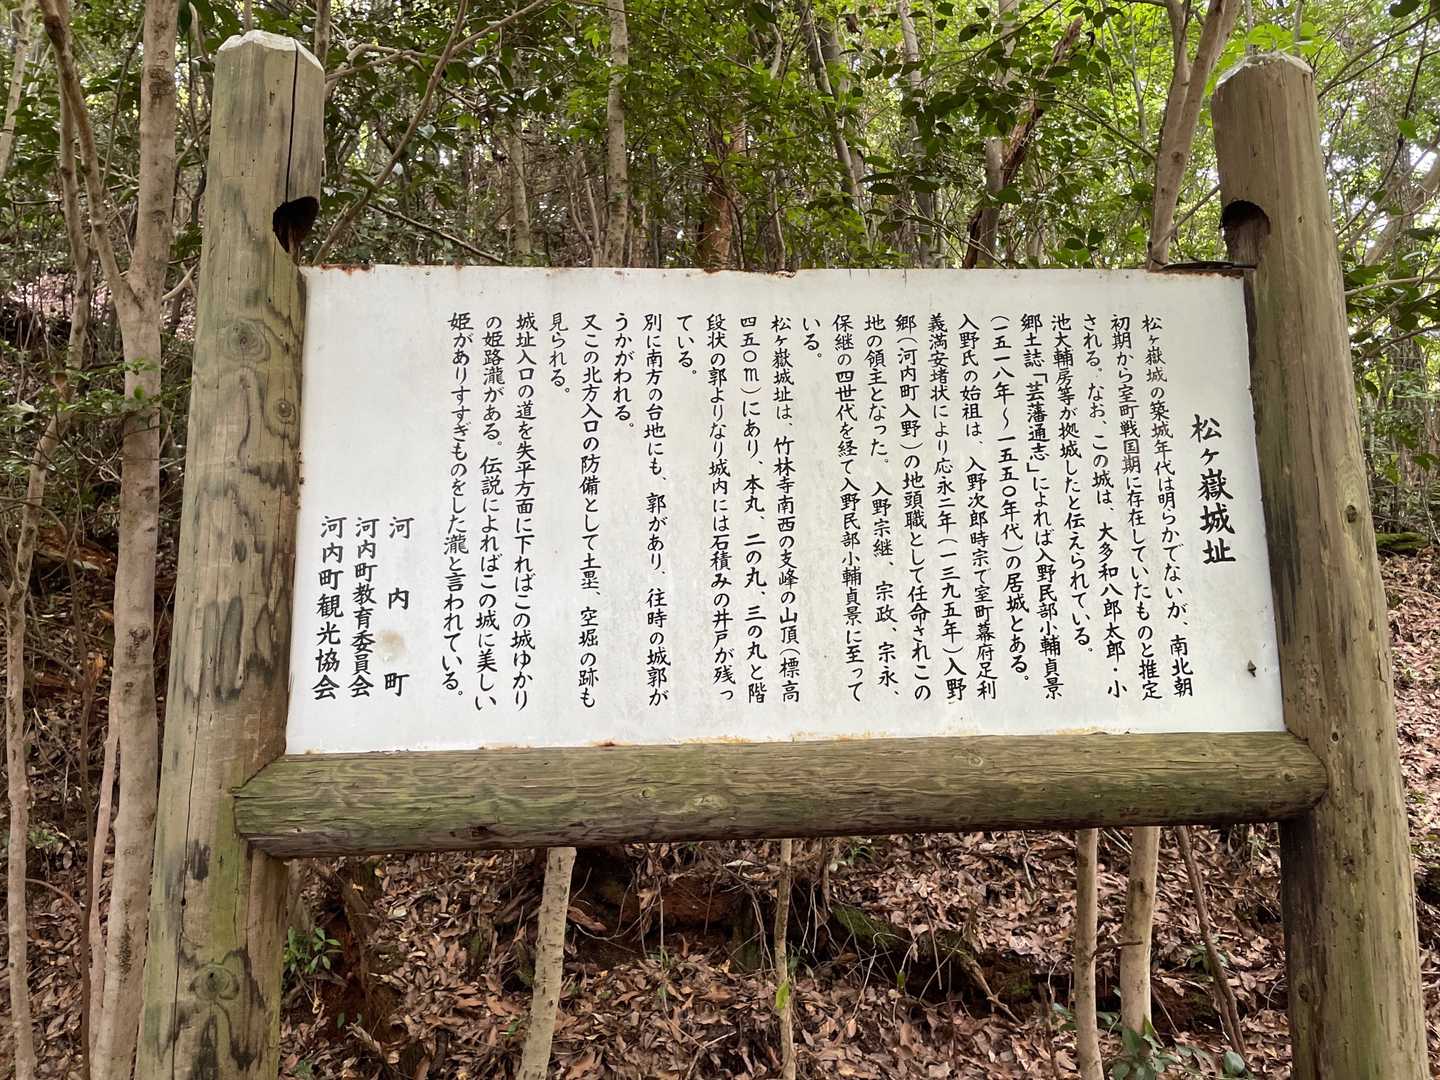 松ヶ嶽城址
松ヶ嶽城の築城年代は明らかでないが、南北朝
初期から室町戦国期に存在していたものと推定
される。なお、この城は、大多和八郎太郎・小
池大輔房等が拠城したと伝えられている。
郷土誌「芸藩通志」によれば入野民部小輔貞景
(一五一八年〜一五五〇年代)の居城とある。
入野氏の始祖は、入野次郎時宗で室町幕府足利
義満安堵状により応永二年(一三九五年)入野
郷(河内町入野)の地頭職として任命されこの
地の領主となった。入野宗継、宗政、宗永、
保継の四世代を経て入野民部小輔貞景に至って
いる。
松ヶ嶽城址は、竹林寺南西の支峰の山頂(標高
四五〇m)にあり、本丸、二の丸、三の丸と階
段状の郭よりなり城内には石積みの井戸が残っ
ている。
別に南方の台地にも、郭があり、往時の城郭が
うかがわれる。
又この北方入口の防備として土塁、空堀の跡も
見られる。
城址入口の道を失平方面に下ればこの城ゆかり
の姫路瀧がある。伝説によればこの城に美しい
姫がありすすぎものをした瀧と言われている。
河内町
河内町教育委員会
河内町観光協会